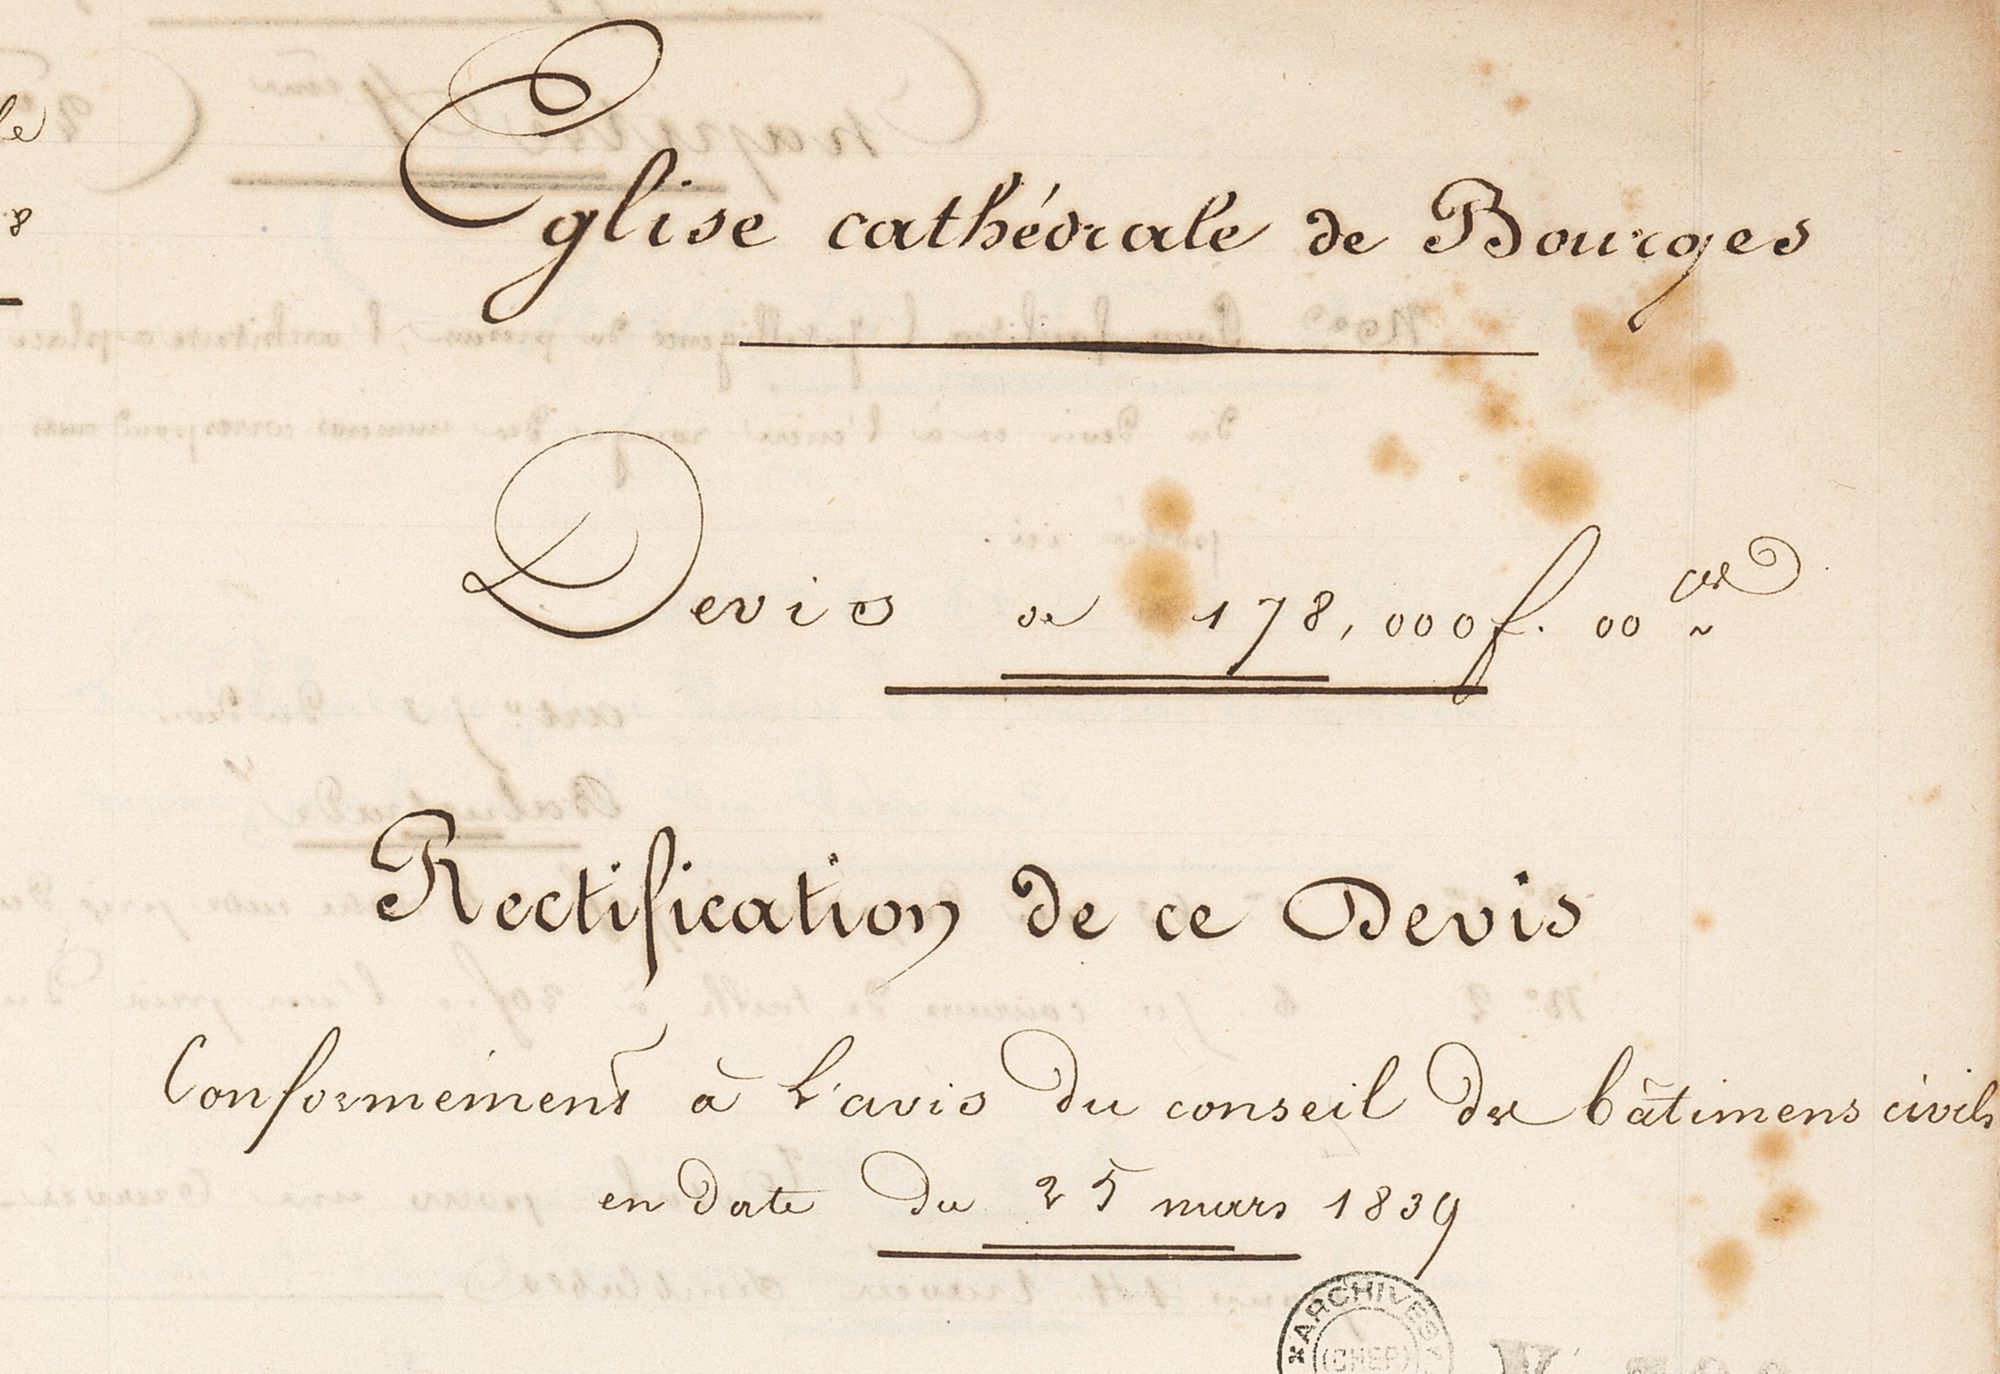 le
8
Eglise cathédrale de Bourges
Devis de 178,000f. 00 ces
Rectification de ce Devis
Conformément à l'avis du conseil des bâtimens civils
en date du 25 mars 1839
ARCHIVES
(CHER)